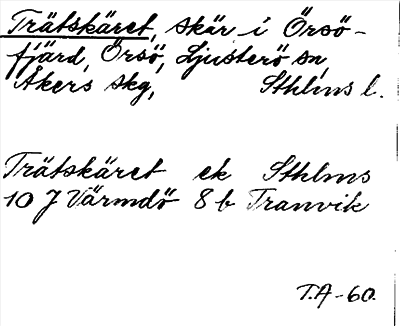 Trätskäret, skär i Örsö-
fjärd, Örsö, Ljusterö sn,
Åkers skg, Sthlms l.
Trätskäret ek Sthlms
10 J Värmdö 8 b Tranvik
T.A-60.